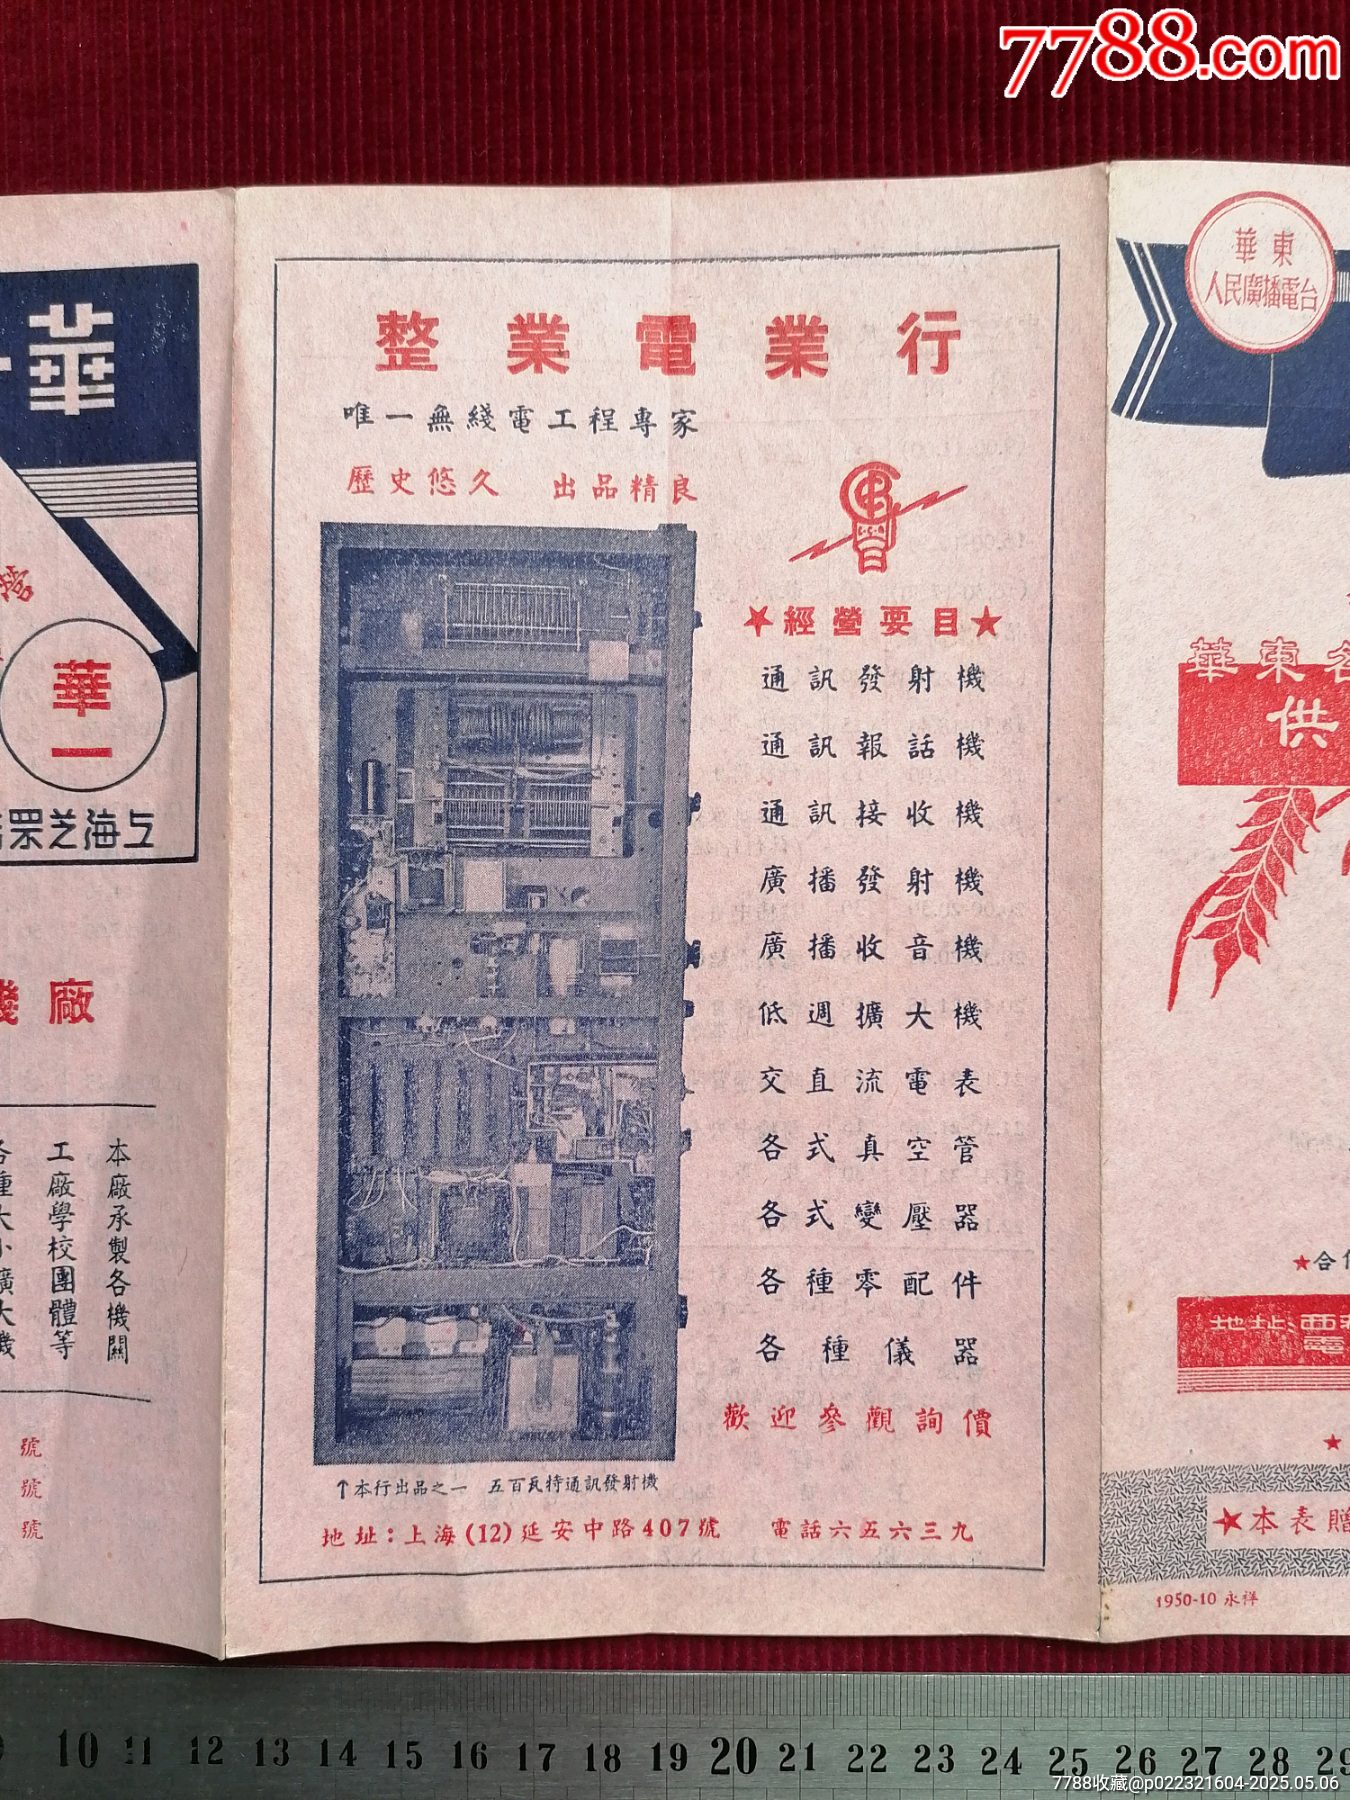 7788.com
華
營
華
一
上海芝罘
廠
本廠承製各機關
工廠學校團體等
各種大小擴大機
號
號
號
整業電業行
唯一無綫電工程專家
歷史悠久 出品精良
★經營要目★
通訊發射機
通訊報話機
通訊接收機
廣播發射機
廣播收音機
低週擴大機
交直流電表
各式真空管
各式變壓器
各種零配件
各種儀器
歡迎參觀詢價
↑本行出品之一 五百瓦特通訊發射機
地址：上海(12)延安中路407號 電話六五六三九
華東
人民廣播電台
華東各
供
★合作
地址:
電
★
★本表贈
1950-10 永祥
10 11 12 13 14 15 16 17 18 19 20 21 22 23 24 25 26 27 28 29
7788收藏@p022321604-2025.05.06